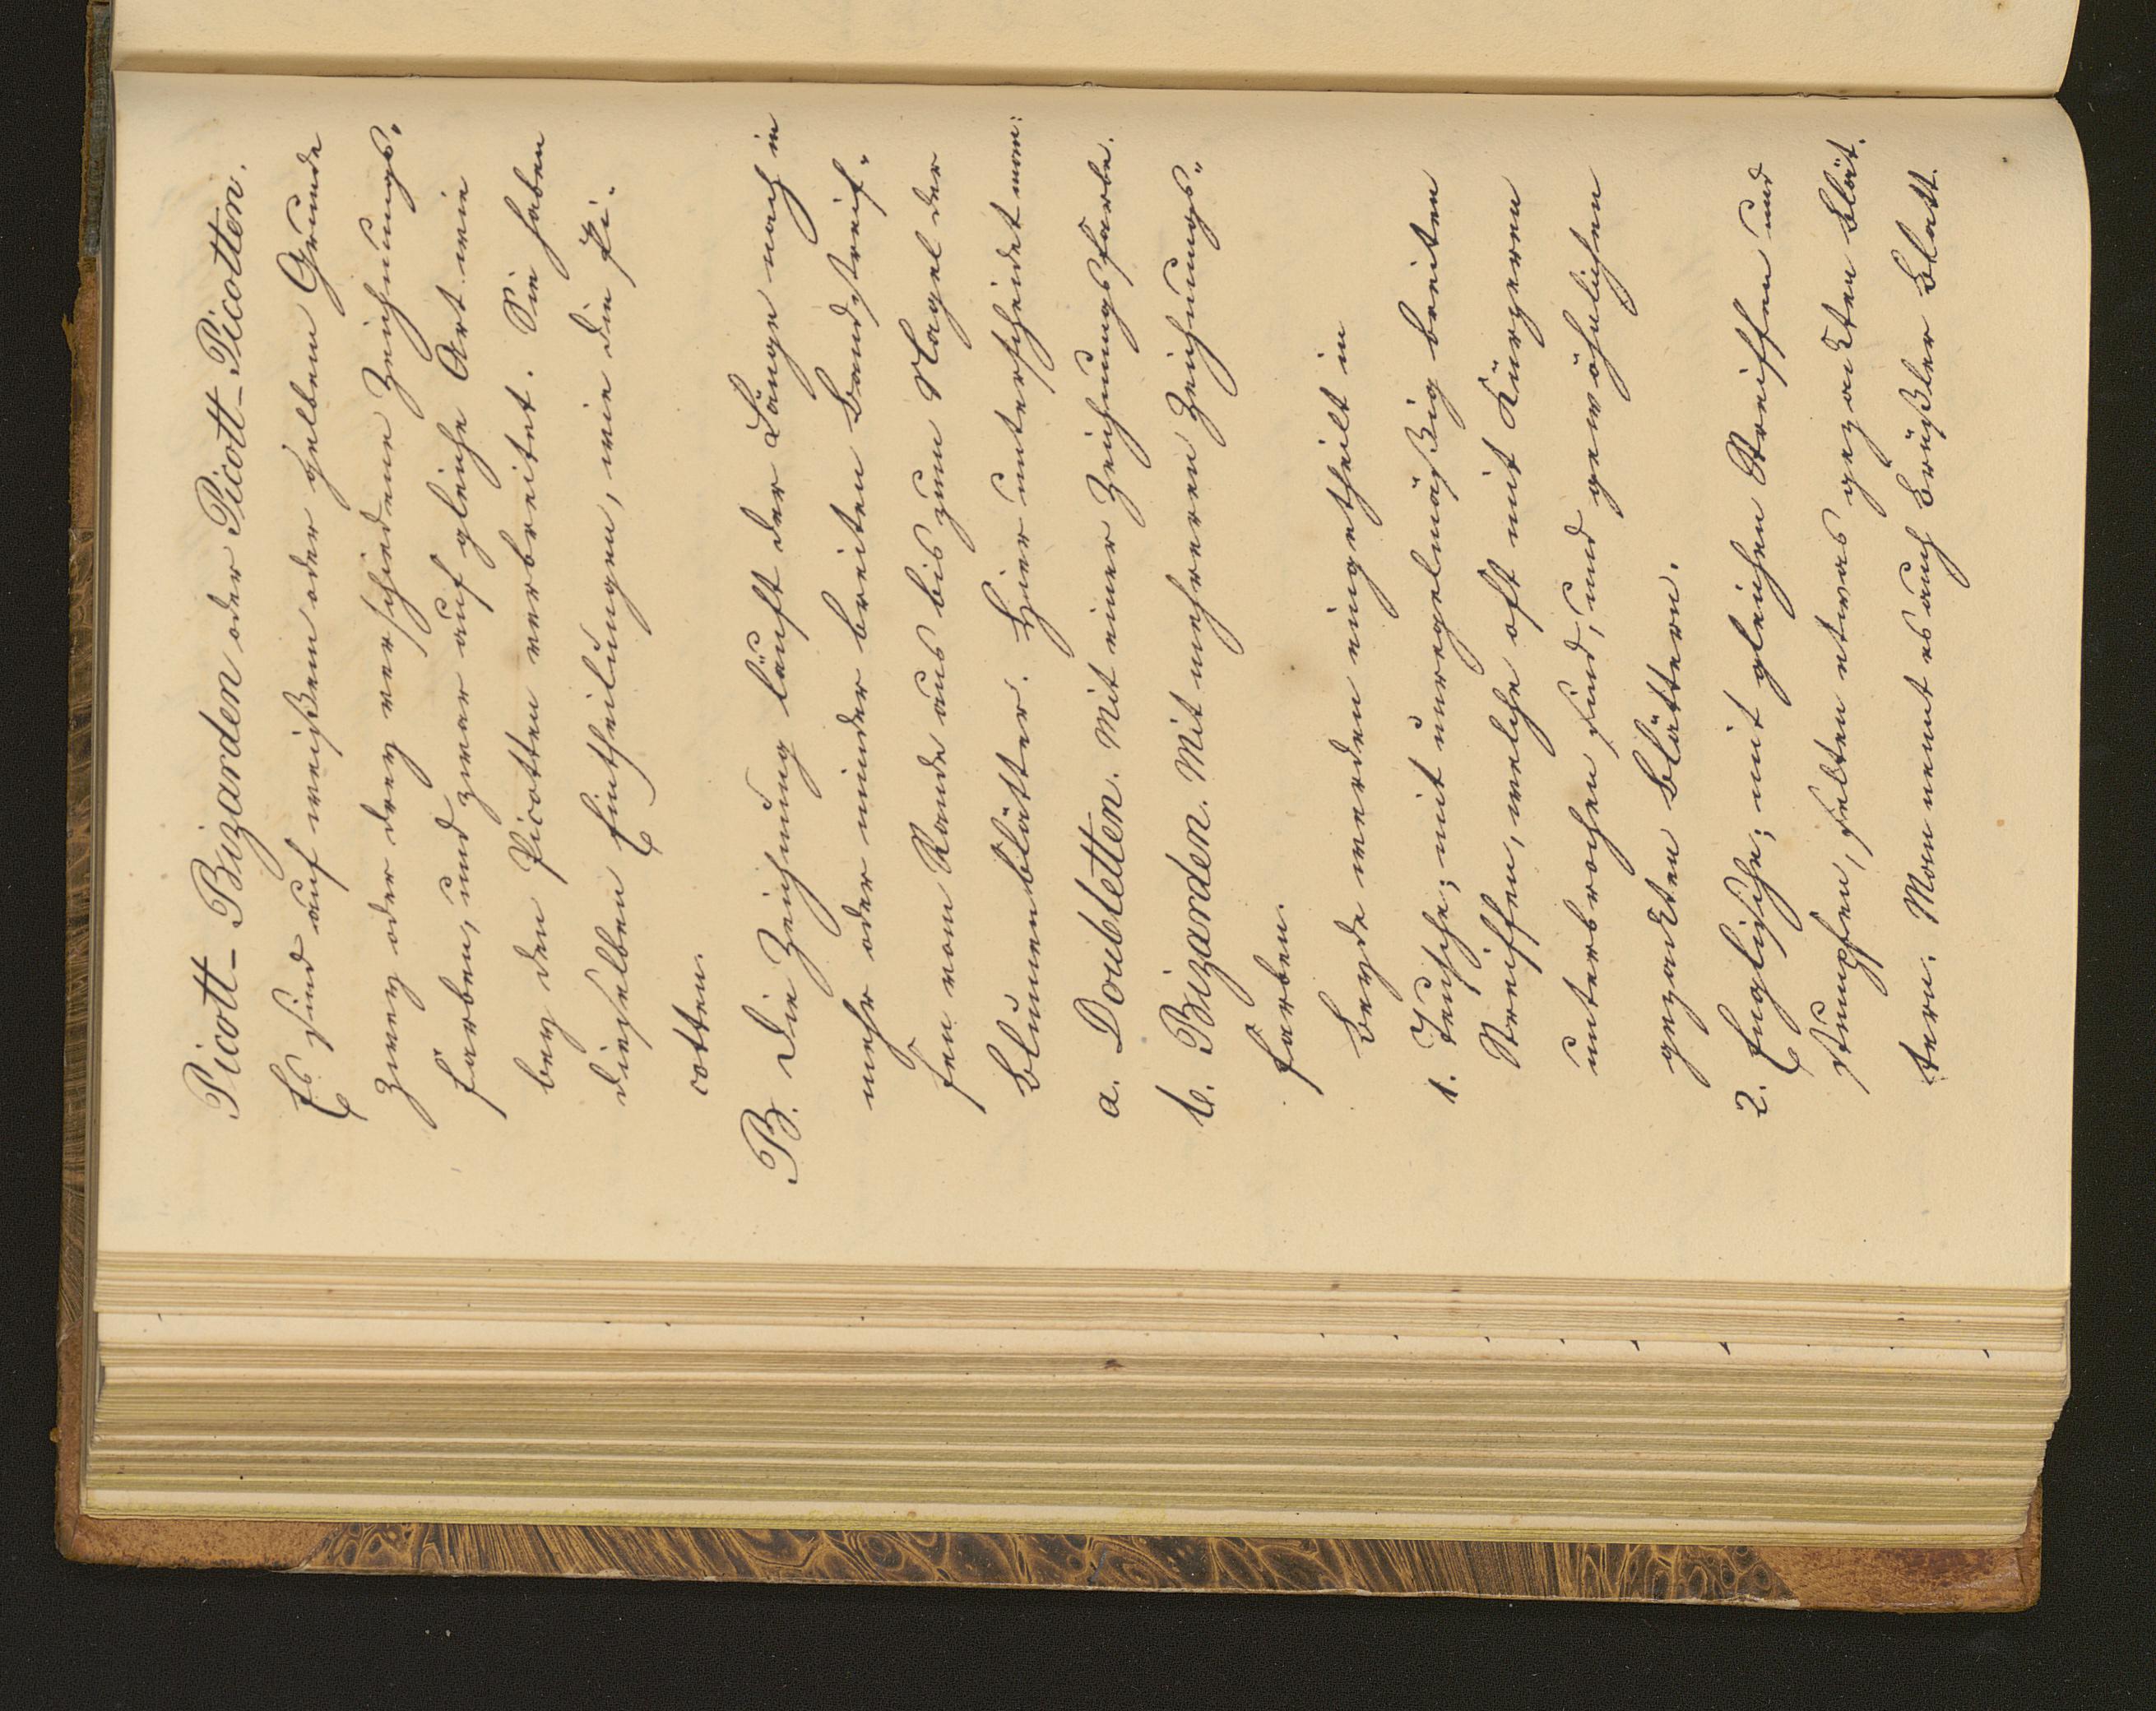 Picott-Bizarden oder Picott-Picotten.
Es sind auf weißem oder gelbem Grunde
zwey oder drey verschiedene Zeichnungs-
farben, und zwar auf gleiche Art wie
bey den Picotten verbreitet. Sie haben
dieselben Eintheilungen, wie die Pi-
cotten.
B. Die Zeichnung läuft der Länge nach in
mehr oder minder breiten Bandstreif-
fen vom Rande aus bis zum Nagel der
Blumenblätter. Hier unterscheidet man:
a. Doubletten. Mit einer Zeichnungsfarbe.
b. Bizarden. Mit mehreren Zeichnungs-
farben.
Beyde werden eingetheilt in
1. Teutsche; mit unregelmäßig breiten
Streiffen, welche oft mit kürzeren
unterbrochen sind, und gewöhnlichen
gezackten Blättern.
2. Englische; mit gleichen Streiffen und
stumpfen, selten etwas gezackten Blät-
tern. Man nennt es auch Brüßler Blatt.